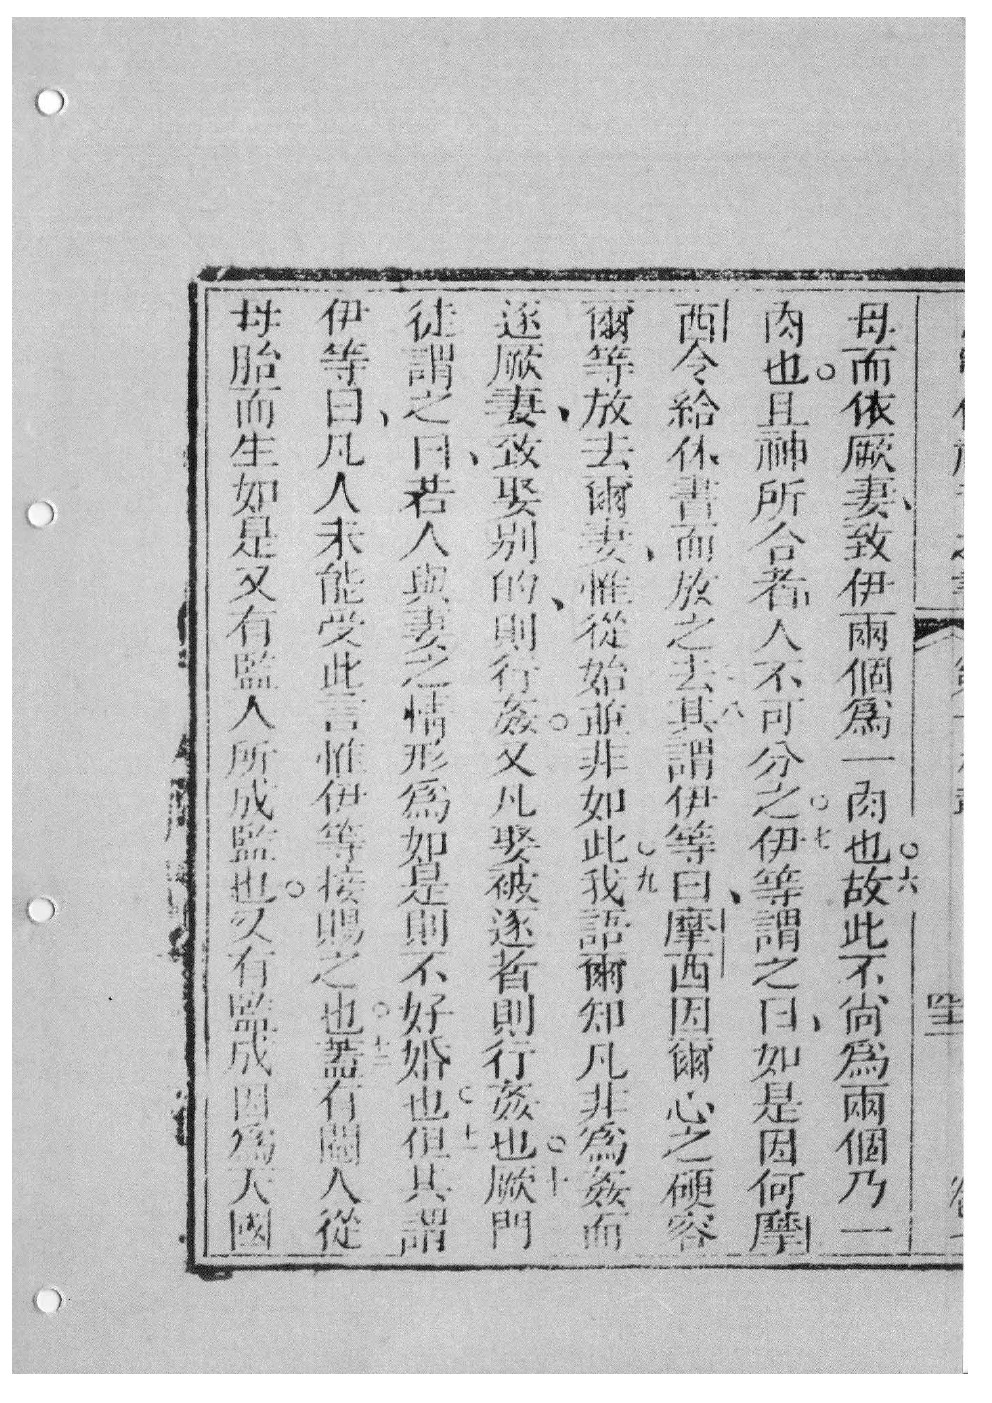 母而依厥妻、致伊兩個爲一肉也○六故此不尚爲兩個乃一
肉也○且神所合者人不可分之○七伊等謂之曰、如是因何摩
西令給休書而放之去八其謂伊等曰、摩西因爾心之硬容
爾等放去爾妻、惟從始並非如此○九我語爾知凡非爲姦而
逐厥妻、致娶別的、則行姦○又凡娶被逐者則行姦也○十厥門
徒謂之曰、若人與妻之情形爲如是則不好婚也○十一但其謂
伊等曰、凡人未能受此言惟伊等接賜之也○十二蓋有閹人從
母胎而生如是又有監人所成監也○又有監成因爲天國